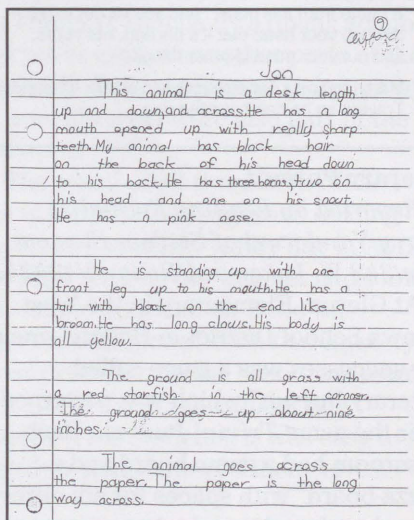 9
Clifford
Jon
This animal is a desk length
up and down, and across. He has a long
mouth opened up with really sharp
teeth. My animal has black hair
on the back of his head down
to his back. He has three horns, two on
his head and one on his snout.
He has a pink nose.
He is standing up with one
front leg up to his mouth. He has a
tail with black on the end like a
broom. He has long claws. His body is
all yellow.
The ground is all grass with
a red starfish in the left corner.
The ground goes up about nine
inches.
The animal goes across
the paper. The paper is the long
way across.